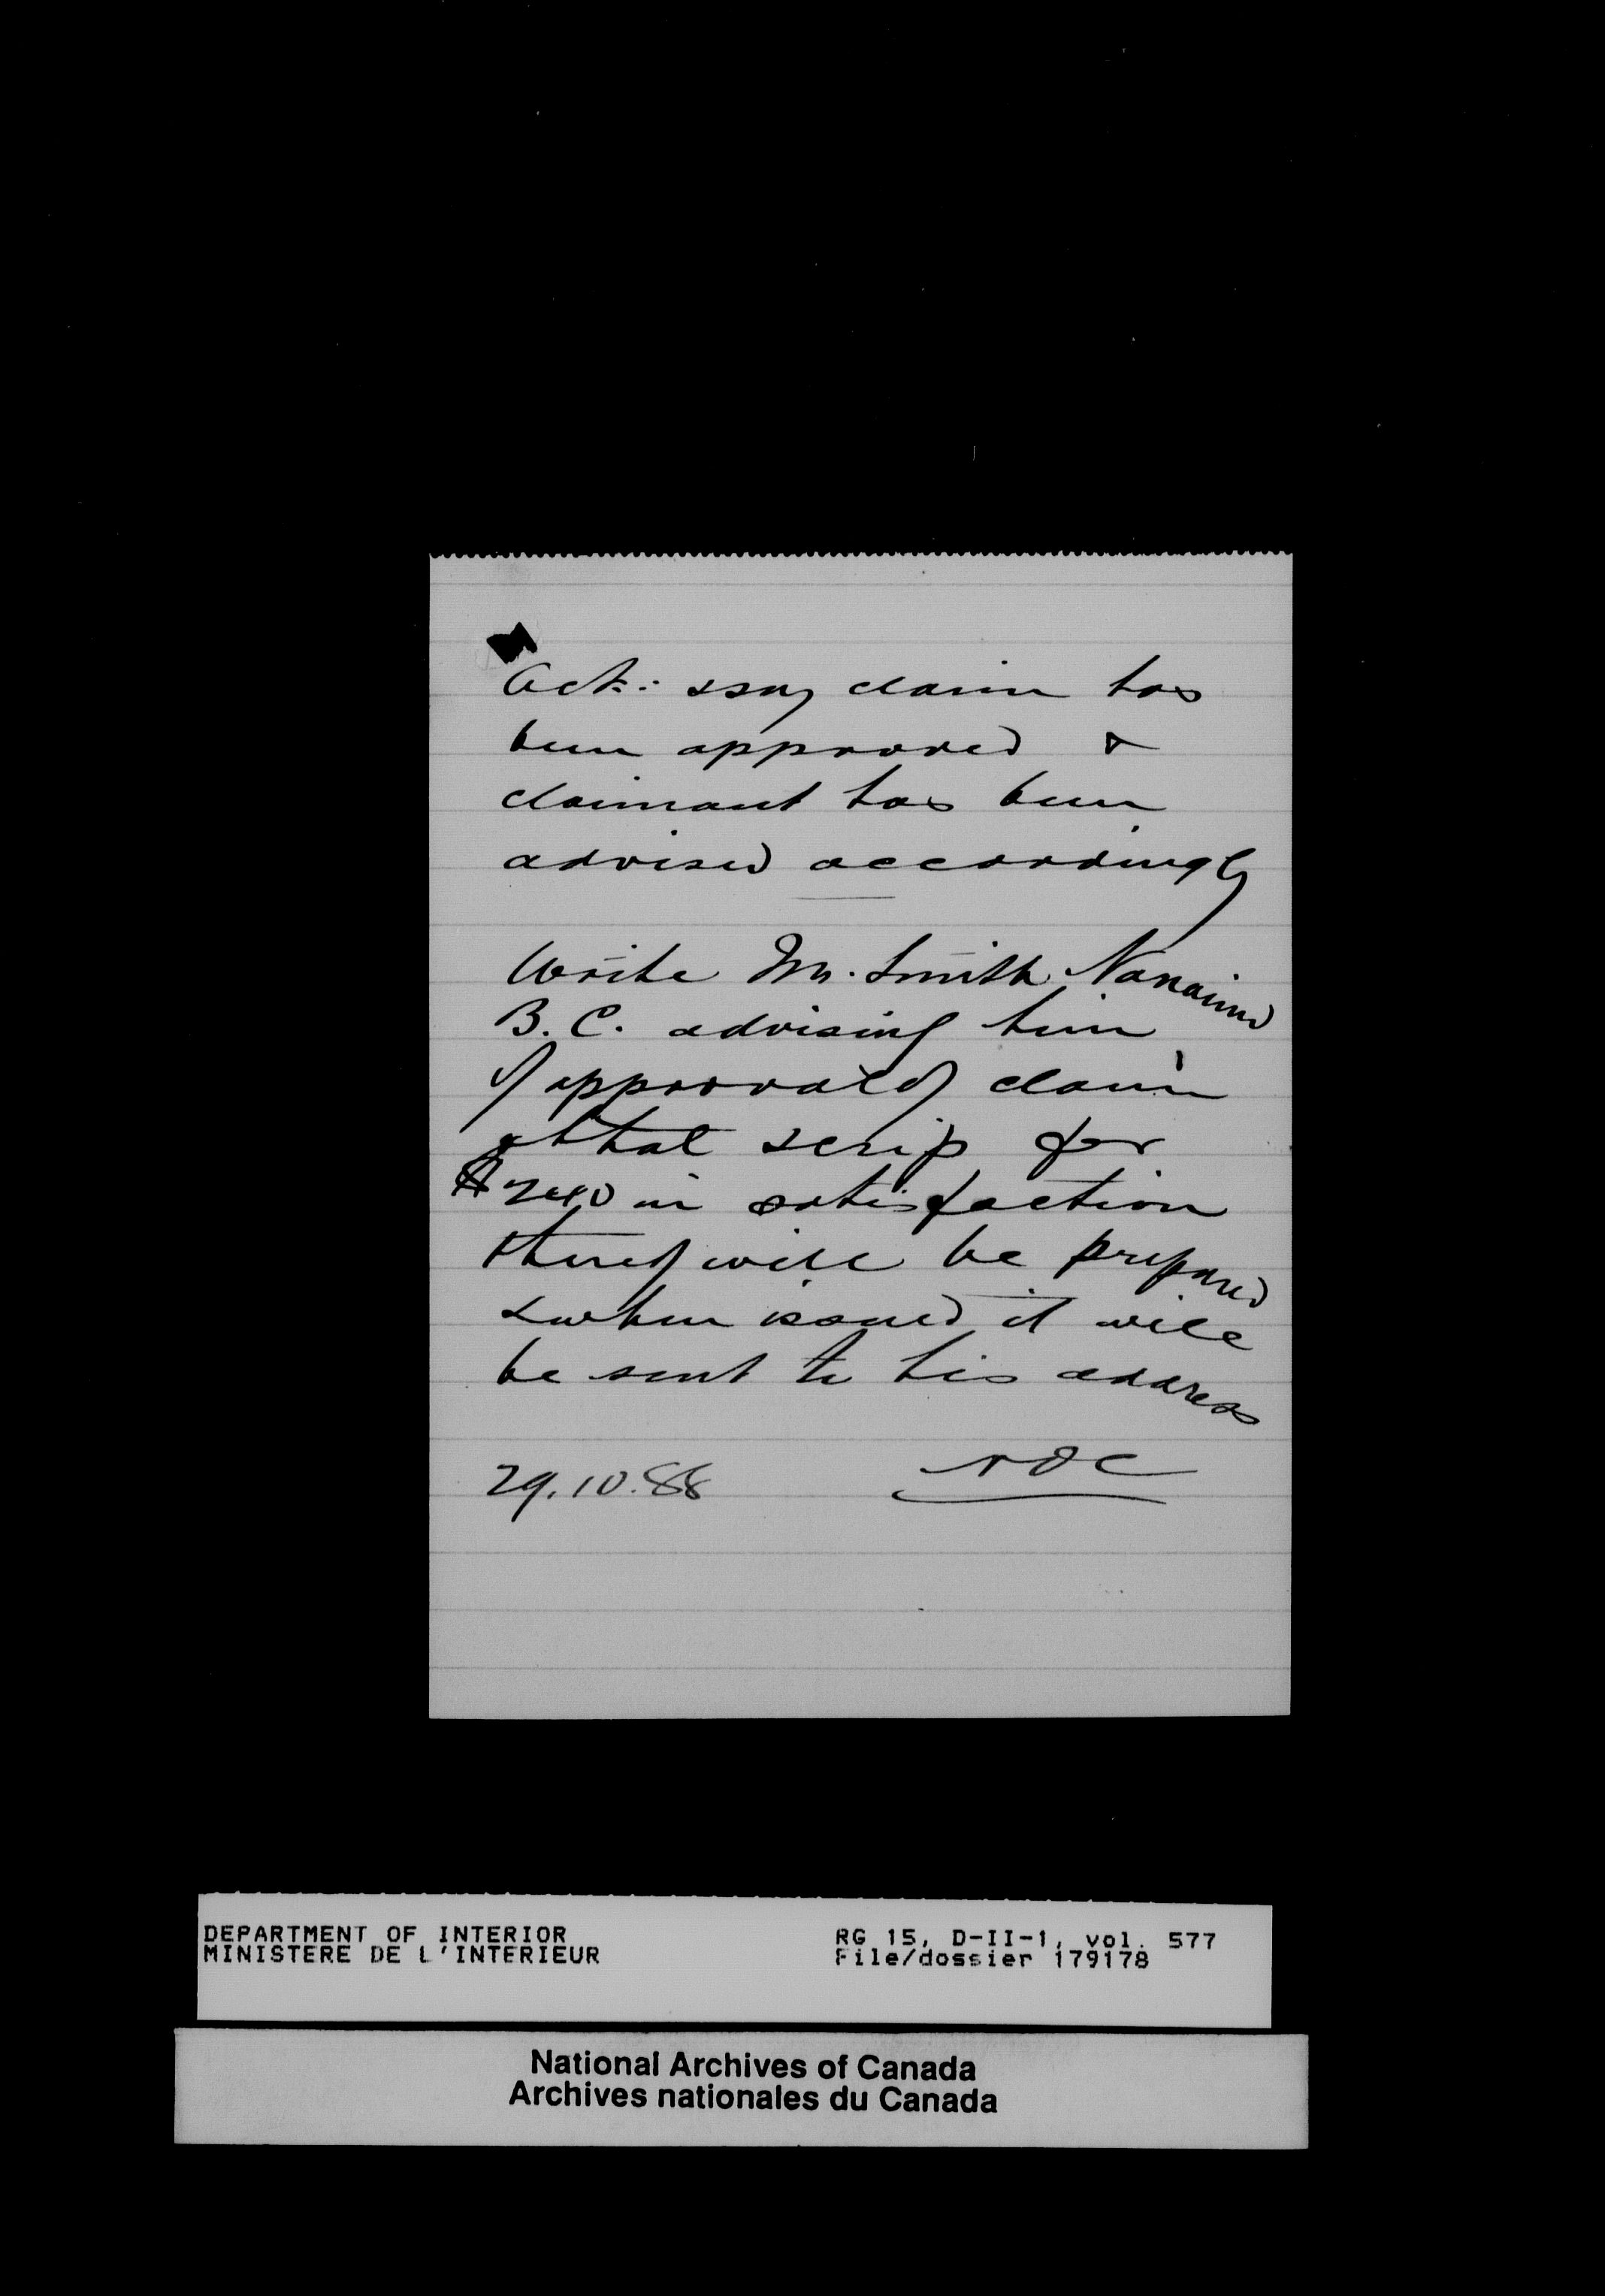 Ack: & say claim has
been approved &
claimant has been
advised accordingly
Write Mr. Smith Nanaimo
B.C. advising him
of approval of claim
& that scrip for
$240 in satisfaction
thereof will be prepared
& when issued it will
be sent to his address
29.10.88
DEPARTMENT OF INTERIOR
MINISTERE DE L'INTERIEUR
RG 15, D-II-1, vol. 577
File/dossier 179178
National Archives of Canada
Archives nationales du Canada